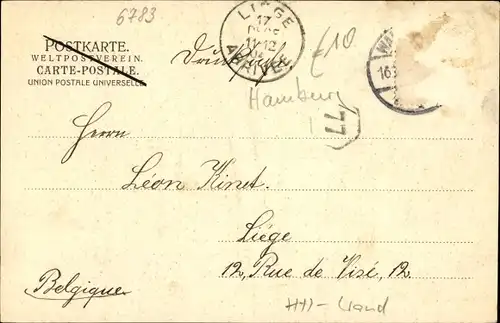 6783
POSTKARTE.
WELTPOSTVEREIN.
CARTE-POSTALE.
UNION POSTALE UNIVERSELLE.
Drucksache
LIEGE
17
11-12
ARRIVEE
£10
163
Hamburg
77
Herrn
Léon Kinet.
Liége
12, Rue de Visé, 12
Belgique
HH-Land